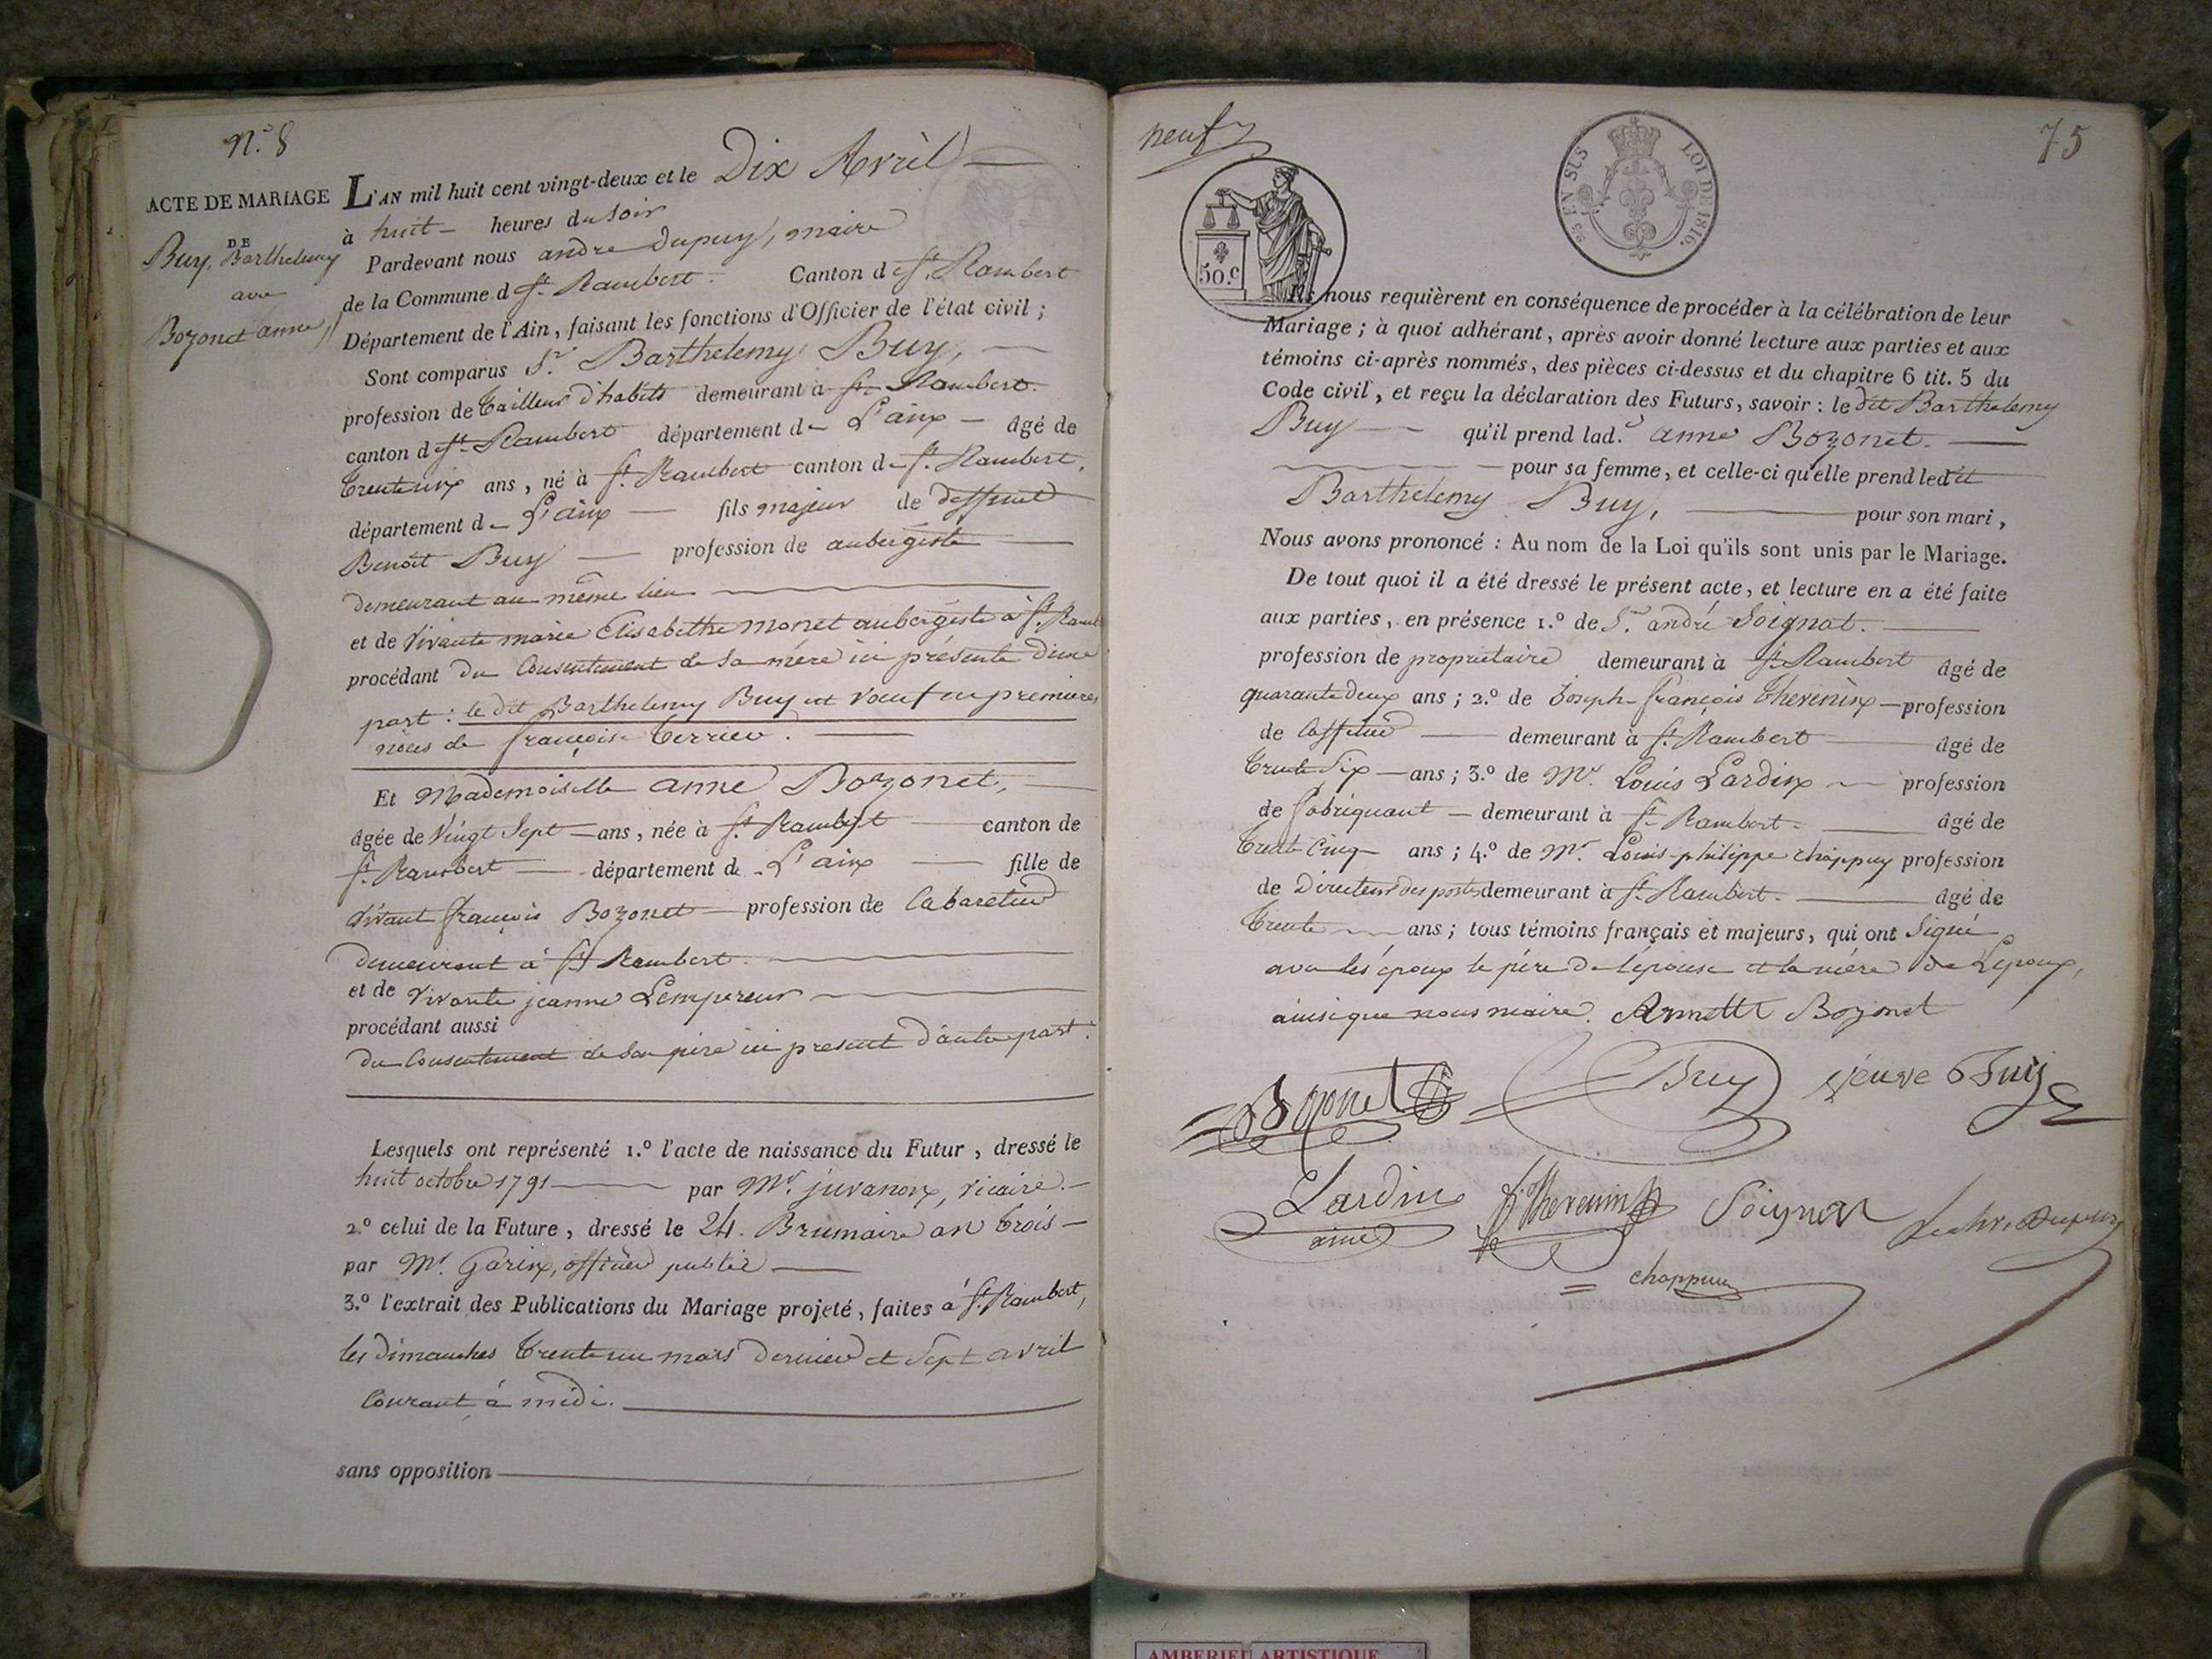 N.° 8
ACTE DE MARIAGE
DE
Buy, Barthelemy
avec
Bozonet anne,
L'AN mil huit cent vingt-deux et le Dix Avril
à huit heures du soir
Pardevant nous andre Dupuy, maire
de la Commune d St. Rambert. Canton de St. Rambert
Département de l'Ain, faisant les fonctions d'Officier de l'état civil ;
Sont comparus Sr. Barthelemy Buy,
profession de tailleur d'habits demeurant à St. Rambert.
canton d St. Rambert département de L'ain âgé de
trente un ans, né à St. Rambert canton de St. Rambert,
département de L'ain fils majeur de deffunt
Benoit Buy profession de aubergiste
demeurant au même lieu
et de vivante marie Elisabethe monet aubergiste à St. Ramb
procédant du consentement de sa mère ici présente d'une
part : le dit Barthelemy Buy est voeuf en premieres
noces de françoise
Et Mademoiselle anne Bozonet,
âgée de vingt sept ans, née à St. Rambert canton de
St. Rambert département de L'ain fille de
vivant françois Bozonet profession de Cabaretier
demeurant à St Rambert.
et de vivante jeanne Lempereur
procédant aussi
du consentement de son père ici present d'autre part :
Lesquels ont représenté 1.° l'acte de naissance du Futur, dressé le
huit octobre 1791 par Mr. juvanon, vicaire.
2.° celui de la Future, dressé le 24. Brumaire an trois
par Mr. Garin, officier public
3.° l'extrait des Publications du Mariage projeté, faites à St. Rambert,
les dimanches trente un mars dernier et sept avril
courant à midi.
sans opposition
neuf
75
50.c
25 EN SUS
LOI DE 1816.
Ils nous requièrent en conséquence de procéder à la célébration de leur
Mariage ; à quoi adhérant, après avoir donné lecture aux parties et aux
témoins ci-après nommés, des pièces ci-dessus et du chapitre 6 tit. 5 du
Code civil, et reçu la déclaration des Futurs, savoir : le dit Barthelemy
Buy qu'il prend lad.e anne Bozonet.
pour sa femme, et celle-ci qu'elle prend ledit
Barthelemy Buy, pour son mari,
Nous avons prononcé : Au nom de la Loi qu'ils sont unis par le Mariage.
De tout quoi il a été dressé le présent acte, et lecture en a été faite
aux parties, en présence 1.° de Sr. andré Soignat.
profession de proprietaire demeurant à St. Rambert âgé de
quarante deux ans ; 2.° de Joseph françois thevenin profession
de demeurant à St. Rambert âgé de
trente six ans ; 3.° de Mr. Louis Lardin profession
de fabriquant demeurant à St. Rambert. âgé de
trente cinq ans ; 4.° de Mr. Louis-philippe chappuy profession
de Directeur des postes demeurant à St. Rambert. âgé de
trente ans ; tous témoins français et majeurs, qui ont signé
avec les époux le père de l'épouse et la mère de L'epoux,
ainsi que nous maire. Annette Bozonet
Bozonet Buy veuve Buy
Lardin
ainé
thevenin Soignat Dupuy
chappuy
AMBERIEU ARTISTIQUE